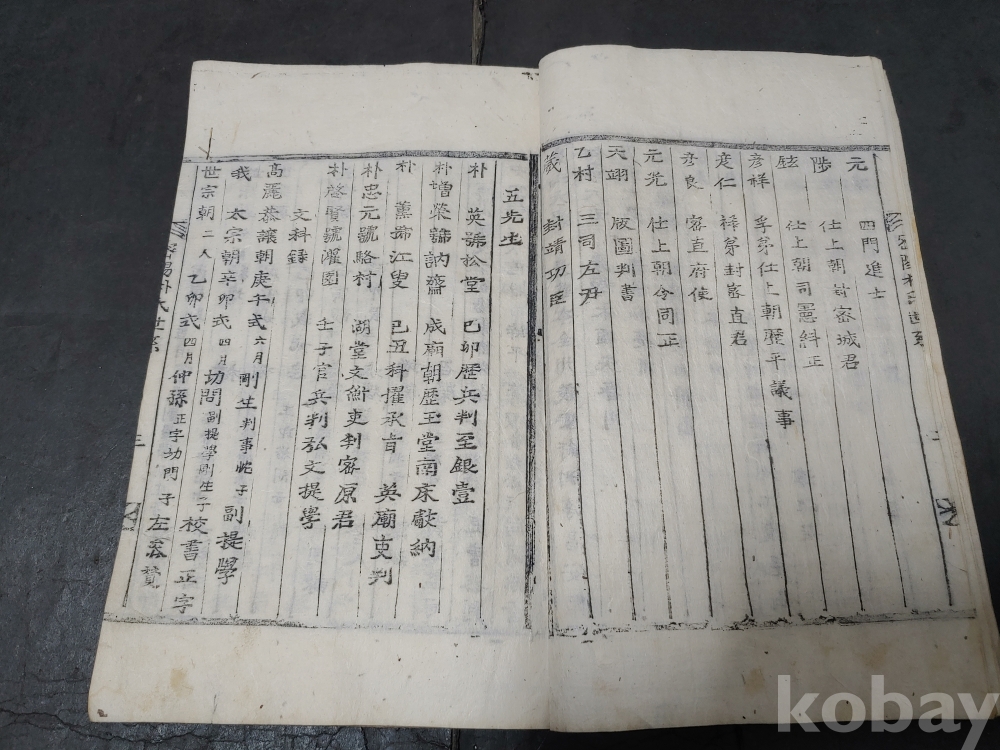 元 四門進士
陟 仕上朝 密城君
鉉 仕上朝司憲糾正
彦祥 孝第仕上朝歷平議事
彦仁 祥弟封密直君
彦良 密直府使
元光 仕上朝令同正
天翊 版圖判書
乙村 三司左尹
蔵 封靖功臣
二
五先生
朴 英號松堂 己卯歷兵判至銀臺
朴增榮號訥齋 成廟朝歷玉堂南床獻納
朴 薰號江叟 己丑科擢承旨 英廟吏判
朴忠元號駱村 湖堂文衡吏判密原君
朴啓賢號灌園 壬子官兵判弘文提學
文科錄
高麗恭讓朝庚午式六月 剛生判事忱子副提學
我 太宗朝辛卯式四月
世宗朝二人 乙卯式四月仲孫正字切門子左參贊
切問副提學剛生子校書正字
密陽朴氏世系
三
kobay